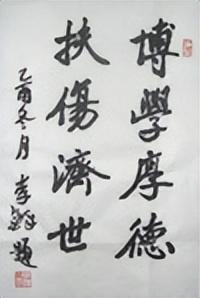 博學厚德
扶傷濟世
乙酉冬月 李 題